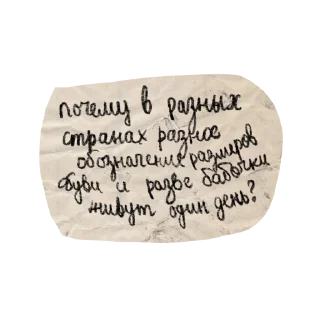 почему в разных
странах разное
обозначение размеров
обуви и разве бабочки
живут один день?